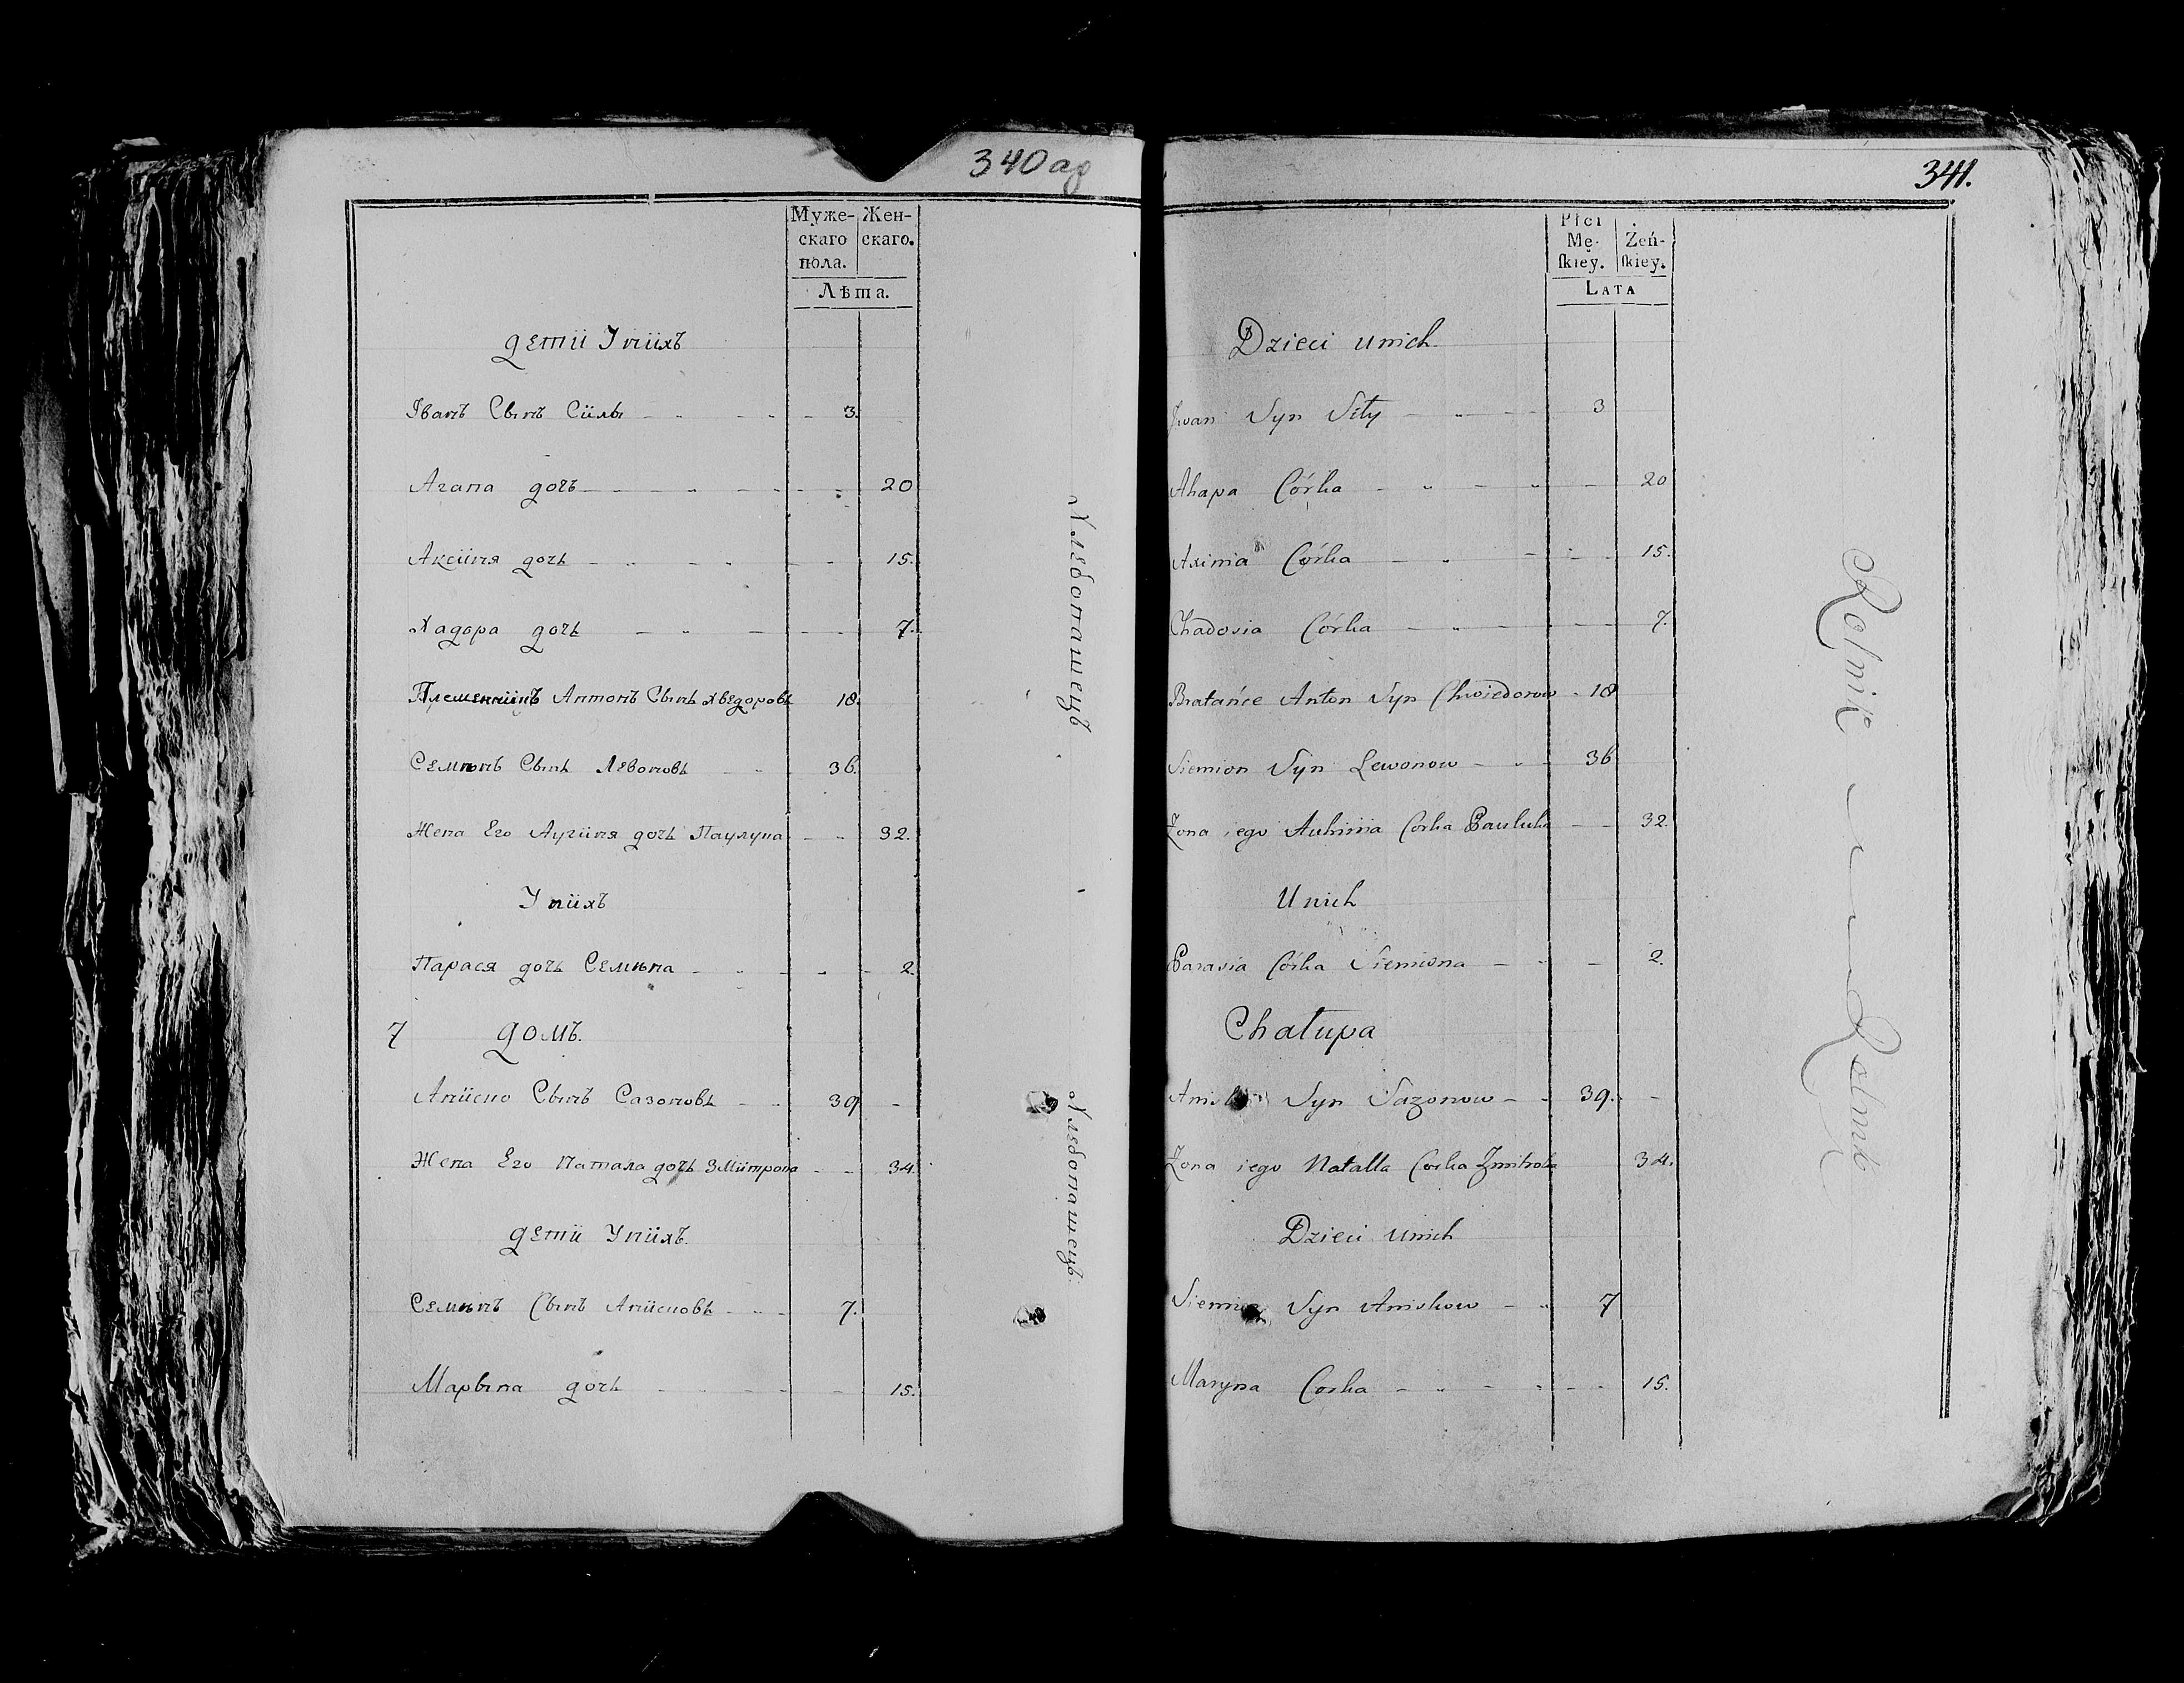 340 ад
Муже- Жен-
скаго скаго.
пола.
Лѣта.
Дети У нихъ
Іванъ Сынъ Силы 3.
Агапа дочь 20
Аксиня дочь 15.
Хадора дочь 7.
Племенникъ Антонъ Сынъ Хведоровъ 18.
Семіонъ Сынъ Левоновъ 36.
Жена Его Аугиня дочь Паулука 32.
У нихъ
Парася дочь Семіона 2.
7 Домъ.
Анисько Сынъ Сазоновъ 39
Жена Его Натала дочь Змитрока 34.
Дети У нихъ.
Семіонъ Сынъ Анисковъ 7.
Марына дочь 15.
Хлебопашецъ
Хлебопашецъ.
341.
Płci
Mę- Żeń-
ſkiey. ſkiey.
LATA
Dzieci u nich
Iwan Syn Siły 3
Ahapa Córka 20
Axinia Córka 15.
Chadosia Córka 7.
Bratańce Anton Syn Chwiedorow 18
Siemion Syn Lewonow 36
Żona iego Auhinia Corka Pauluka 32.
U nich
Parasia Córka Siemiona 2.
Chałupa
Syn Sazonow 39.
Żona iego Natalla Corka Zmitroka 34.
Dzieci u nich
Siemion Syn Aniskow 7
Maryna Corka 15.
Rolnik
Rolnik